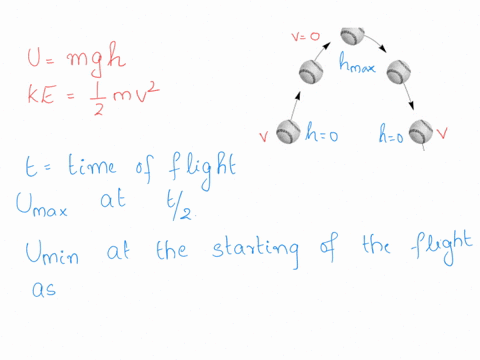 v=0
U = mgh
hmax
KE = 1/2 mv²
v h=0 h=0 v
t = time of flight
Umax at t/2
Umin at the starting of the flight
as